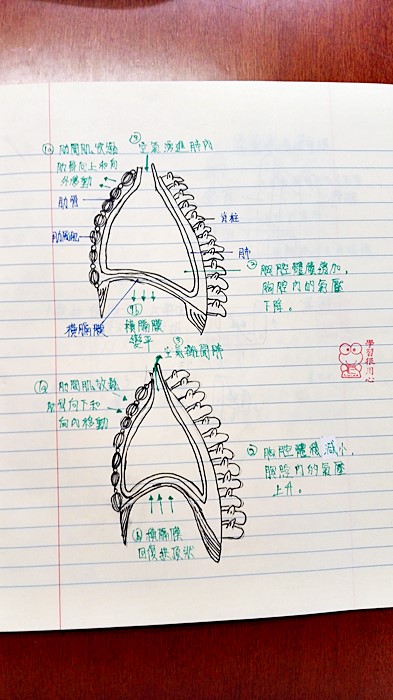 ③ 空氣湧進肺內
1a 肋間肌收縮
肋骨向上和向
外移動
肋骨
肋間肌
脊柱
肺
② 胸腔體積增加,
胸腔內的氣壓
下降。
橫膈膜
1b
橫膈膜
變平
③
空氣離開肺
1a 肋間肌放鬆
肋骨向下和
向內移動
② 胸腔體積減小,
胸腔內的氣壓
上升。
橫膈膜
回復拱頂狀
學習很用心